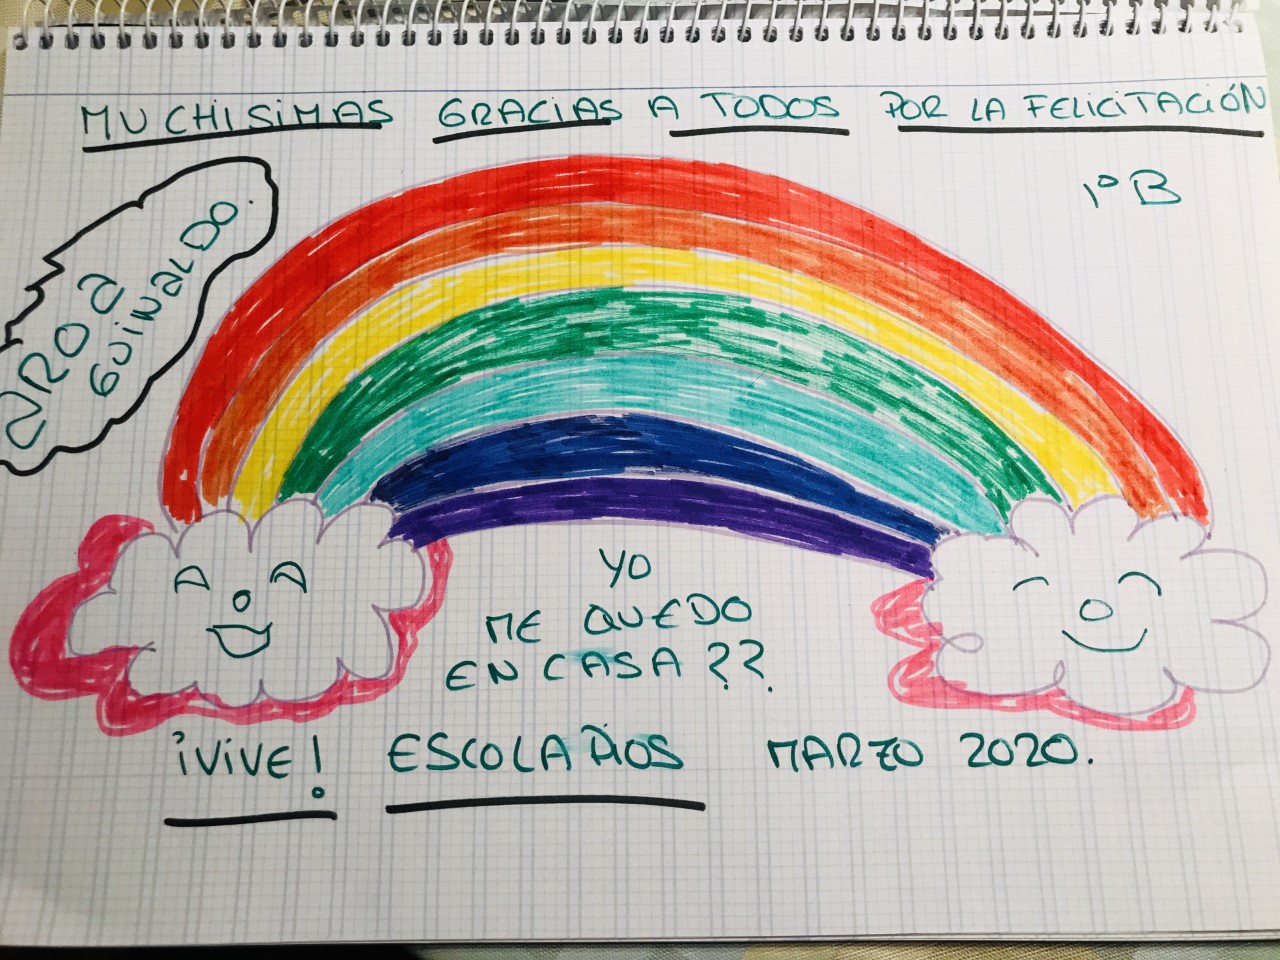 MUCHISIMAS GRACIAS A TODOS POR LA FELICITACIÓN
1º B
AROA
GUINALDO.
YO
ME QUEDO
EN CASA??.
¡VIVE! ESCOLAPIOS MARZO 2020.